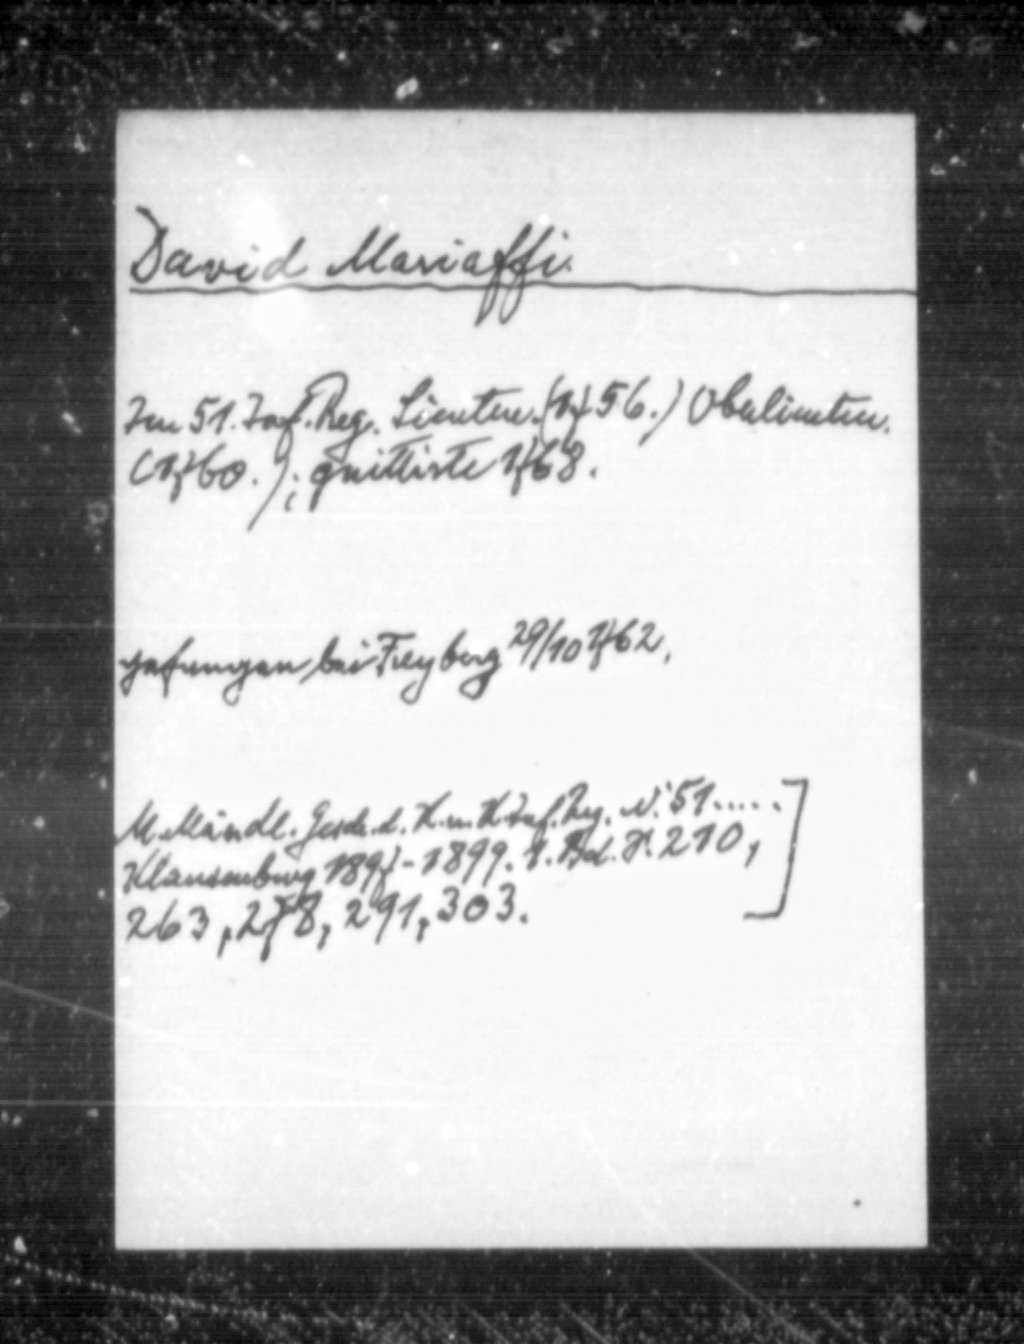 David Mariaffi.
Im 51. Inf. Reg. Lieuten. (1756.) Oberlieuten.
(1760.); quittirte 1768.
gefangen bei Freyberg 29/10 1762,
M. Mändl. Gesch. d. K. u. K. Inf. Reg. N. 51.....
Klausenburg 1897-1899. 1. Bd. S. 210,
263, 278, 291, 303.